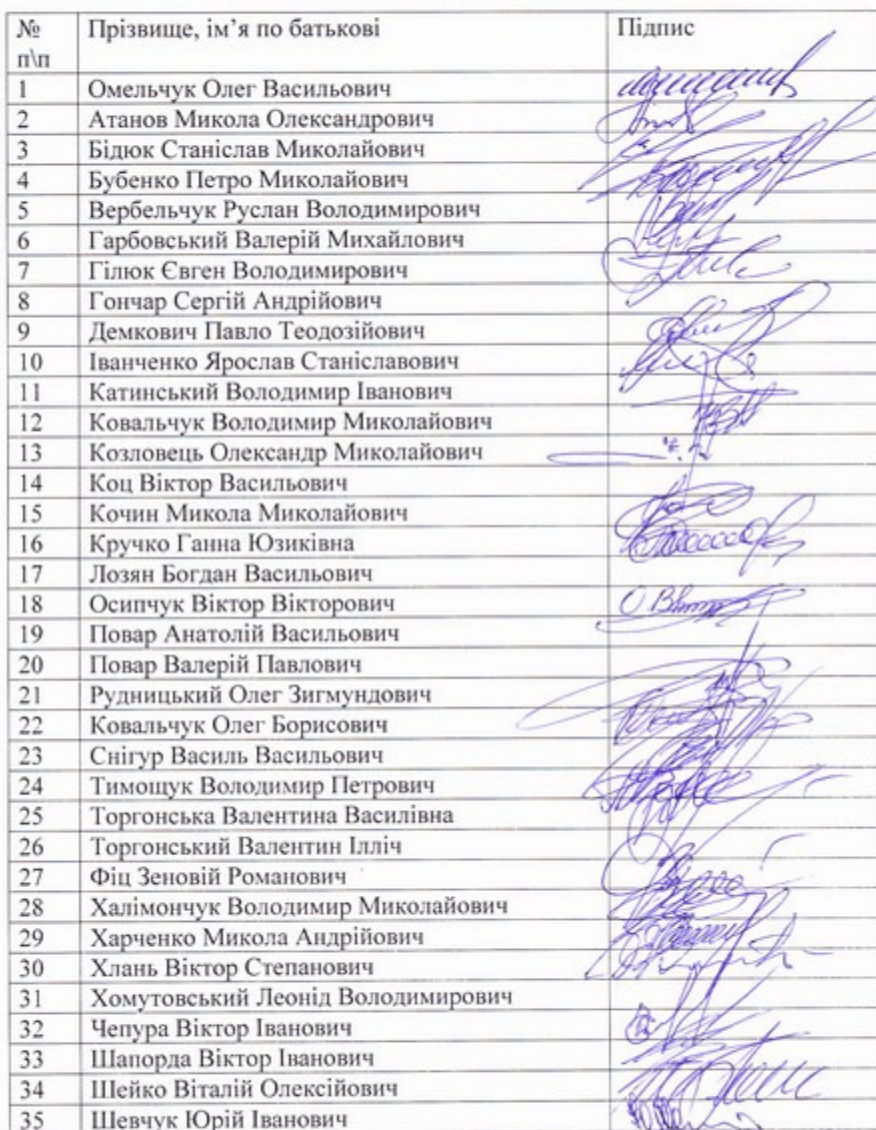 № Прізвище, ім’я по батькові Підпис
п\п
1 Омельчук Олег Васильович
2 Атанов Микола Олександрович
3 Бідюк Станіслав Миколайович
4 Бубенко Петро Миколайович
5 Вербельчук Руслан Володимирович
6 Гарбовський Валерій Михайлович
7 Гілюк Євген Володимирович
8 Гончар Сергій Андрійович
9 Демкович Павло Теодозійович
10 Іванченко Ярослав Станіславович
11 Катинський Володимир Іванович
12 Ковальчук Володимир Миколайович
13 Козловець Олександр Миколайович
14 Коц Віктор Васильович
15 Кочин Микола Миколайович
16 Кручко Ганна Юзиківна
17 Лозян Богдан Васильович
18 Осипчук Віктор Вікторович
19 Повар Анатолій Васильович
20 Повар Валерій Павлович
21 Рудницький Олег Зигмундович
22 Ковальчук Олег Борисович
23 Снігур Василь Васильович
24 Тимощук Володимир Петрович
25 Торгонська Валентина Василівна
26 Торгонський Валентин Ілліч
27 Фіц Зеновій Романович
28 Халімончук Володимир Миколайович
29 Харченко Микола Андрійович
30 Хлань Віктор Степанович
31 Хомутовський Леонід Володимирович
32 Чепура Віктор Іванович
33 Шапорда Віктор Іванович
34 Шейко Віталій Олексійович
35 Шевчук Юрій Іванович